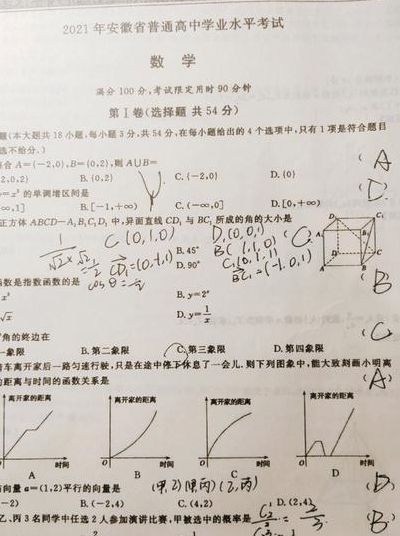 2021年安徽省普通高中学业水平考试
数 学
满分100分,考试限定用时90分钟
第Ⅰ卷(选择题 共54分)
题(本大题共18小题,每小题3分,共54分,在每小题给出的4个选项中,只有1项是符合题目
选不给分.)
合 A={-2,0},B={0,2},则 A∪B= ( A
-2,0,2} B.{0,2} C.{-2,0} D.{0}
=x² 的单调增区间是 ( D
B.[-1,+∞) C.(-∞,0] D.[0,+∞)
正方体 ABCD-A₁B₁C₁D₁ 中,异面直线 CD₁ 与 BC₁ 所成的角的大小是 ( C
C(0,1,0) D₁(0,0,1)
B(1,1,0)
C₁(0,1,1)
B. 45°
D. 90°
函数是指数函数的是 ( B
x² B. y=2ˣ
√x D. y=1/x
角的终边在 ( C
一象限 B. 第二象限 C. 第三象限 D. 第四象限
骑车离开家后一路匀速行驶,只是在途中停下休息了一会儿.则下列图象中,能大致刻画小明离
的距离与时间的函数关系是 ( A )
离开家的距离 离开家的距离 离开家的距离 离开家的距离
时间 时间 时间 时间
A B C D
与向量 a=(1,2)平行的向量是 (D)
-2) B. (-2,4) C. (4,2) D. (2,4)
乙、丙3名同学中任选2人参加演讲比赛,甲被选中的概率是 (B)